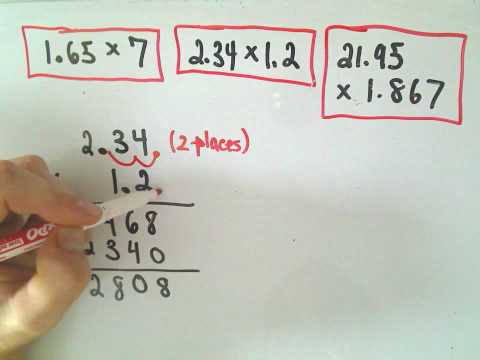 1.65 × 7
2.34 × 1.2
21.95
× 1.867
2.34 (2 places)
1.2
468
2340
2808